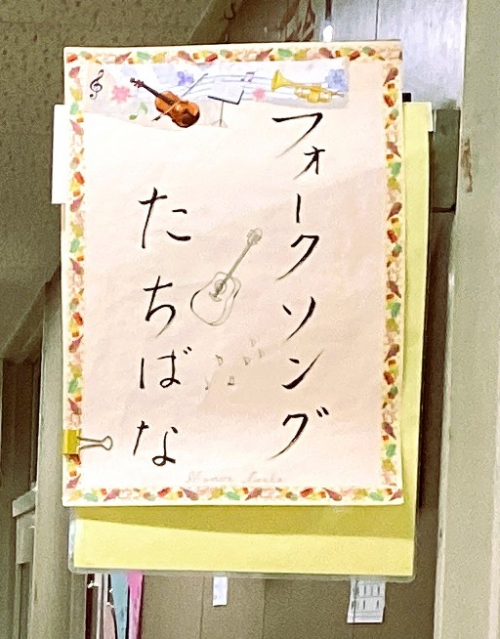 フォークソング
たちばな